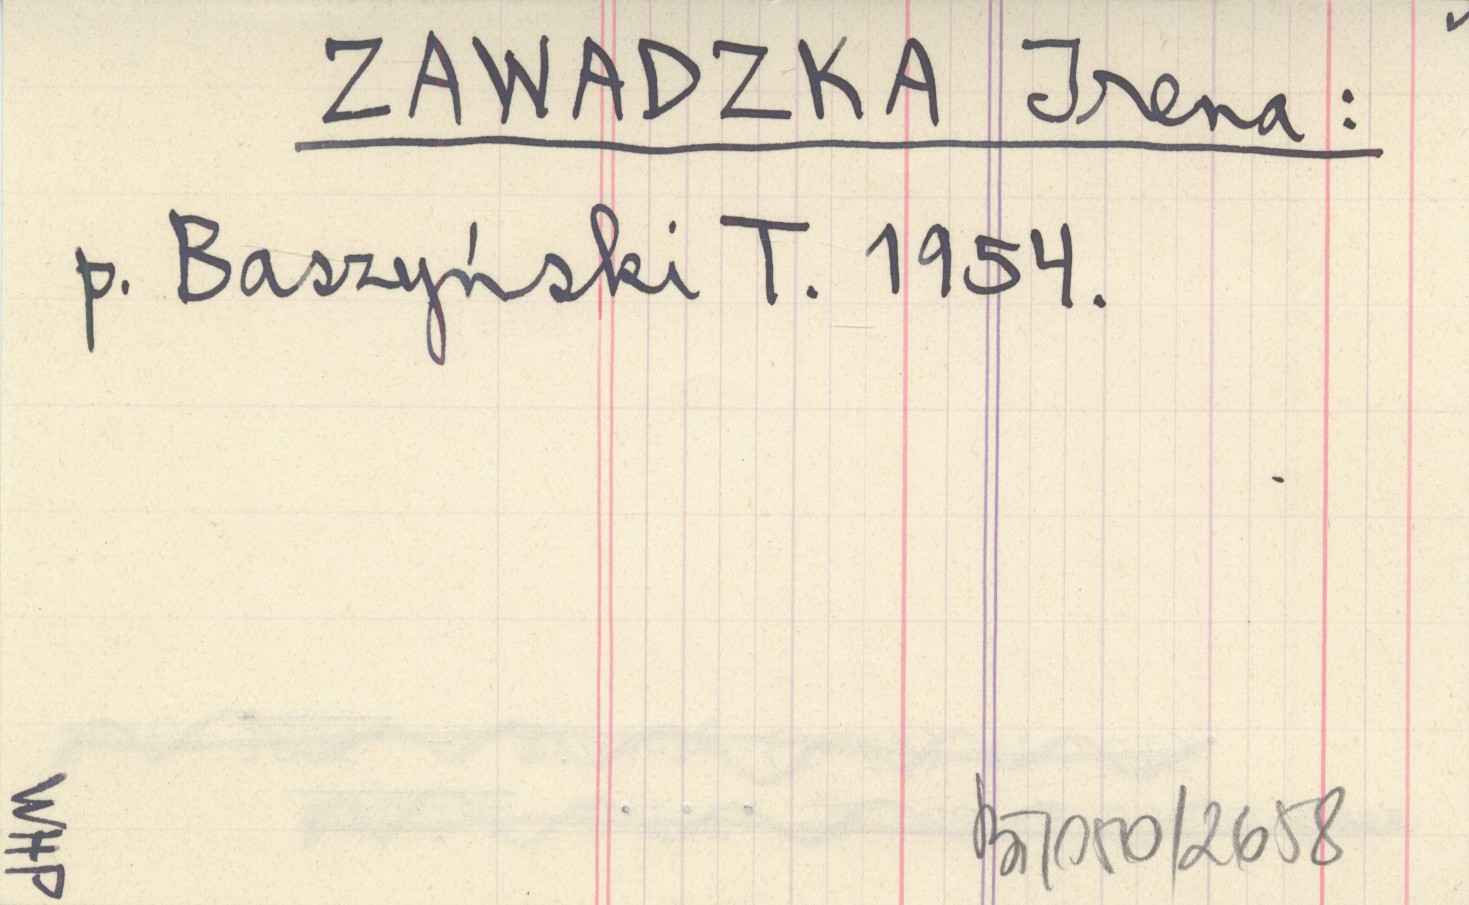 ZAWADZKA Irena:
p. Baszyński T. 1954.
WHP